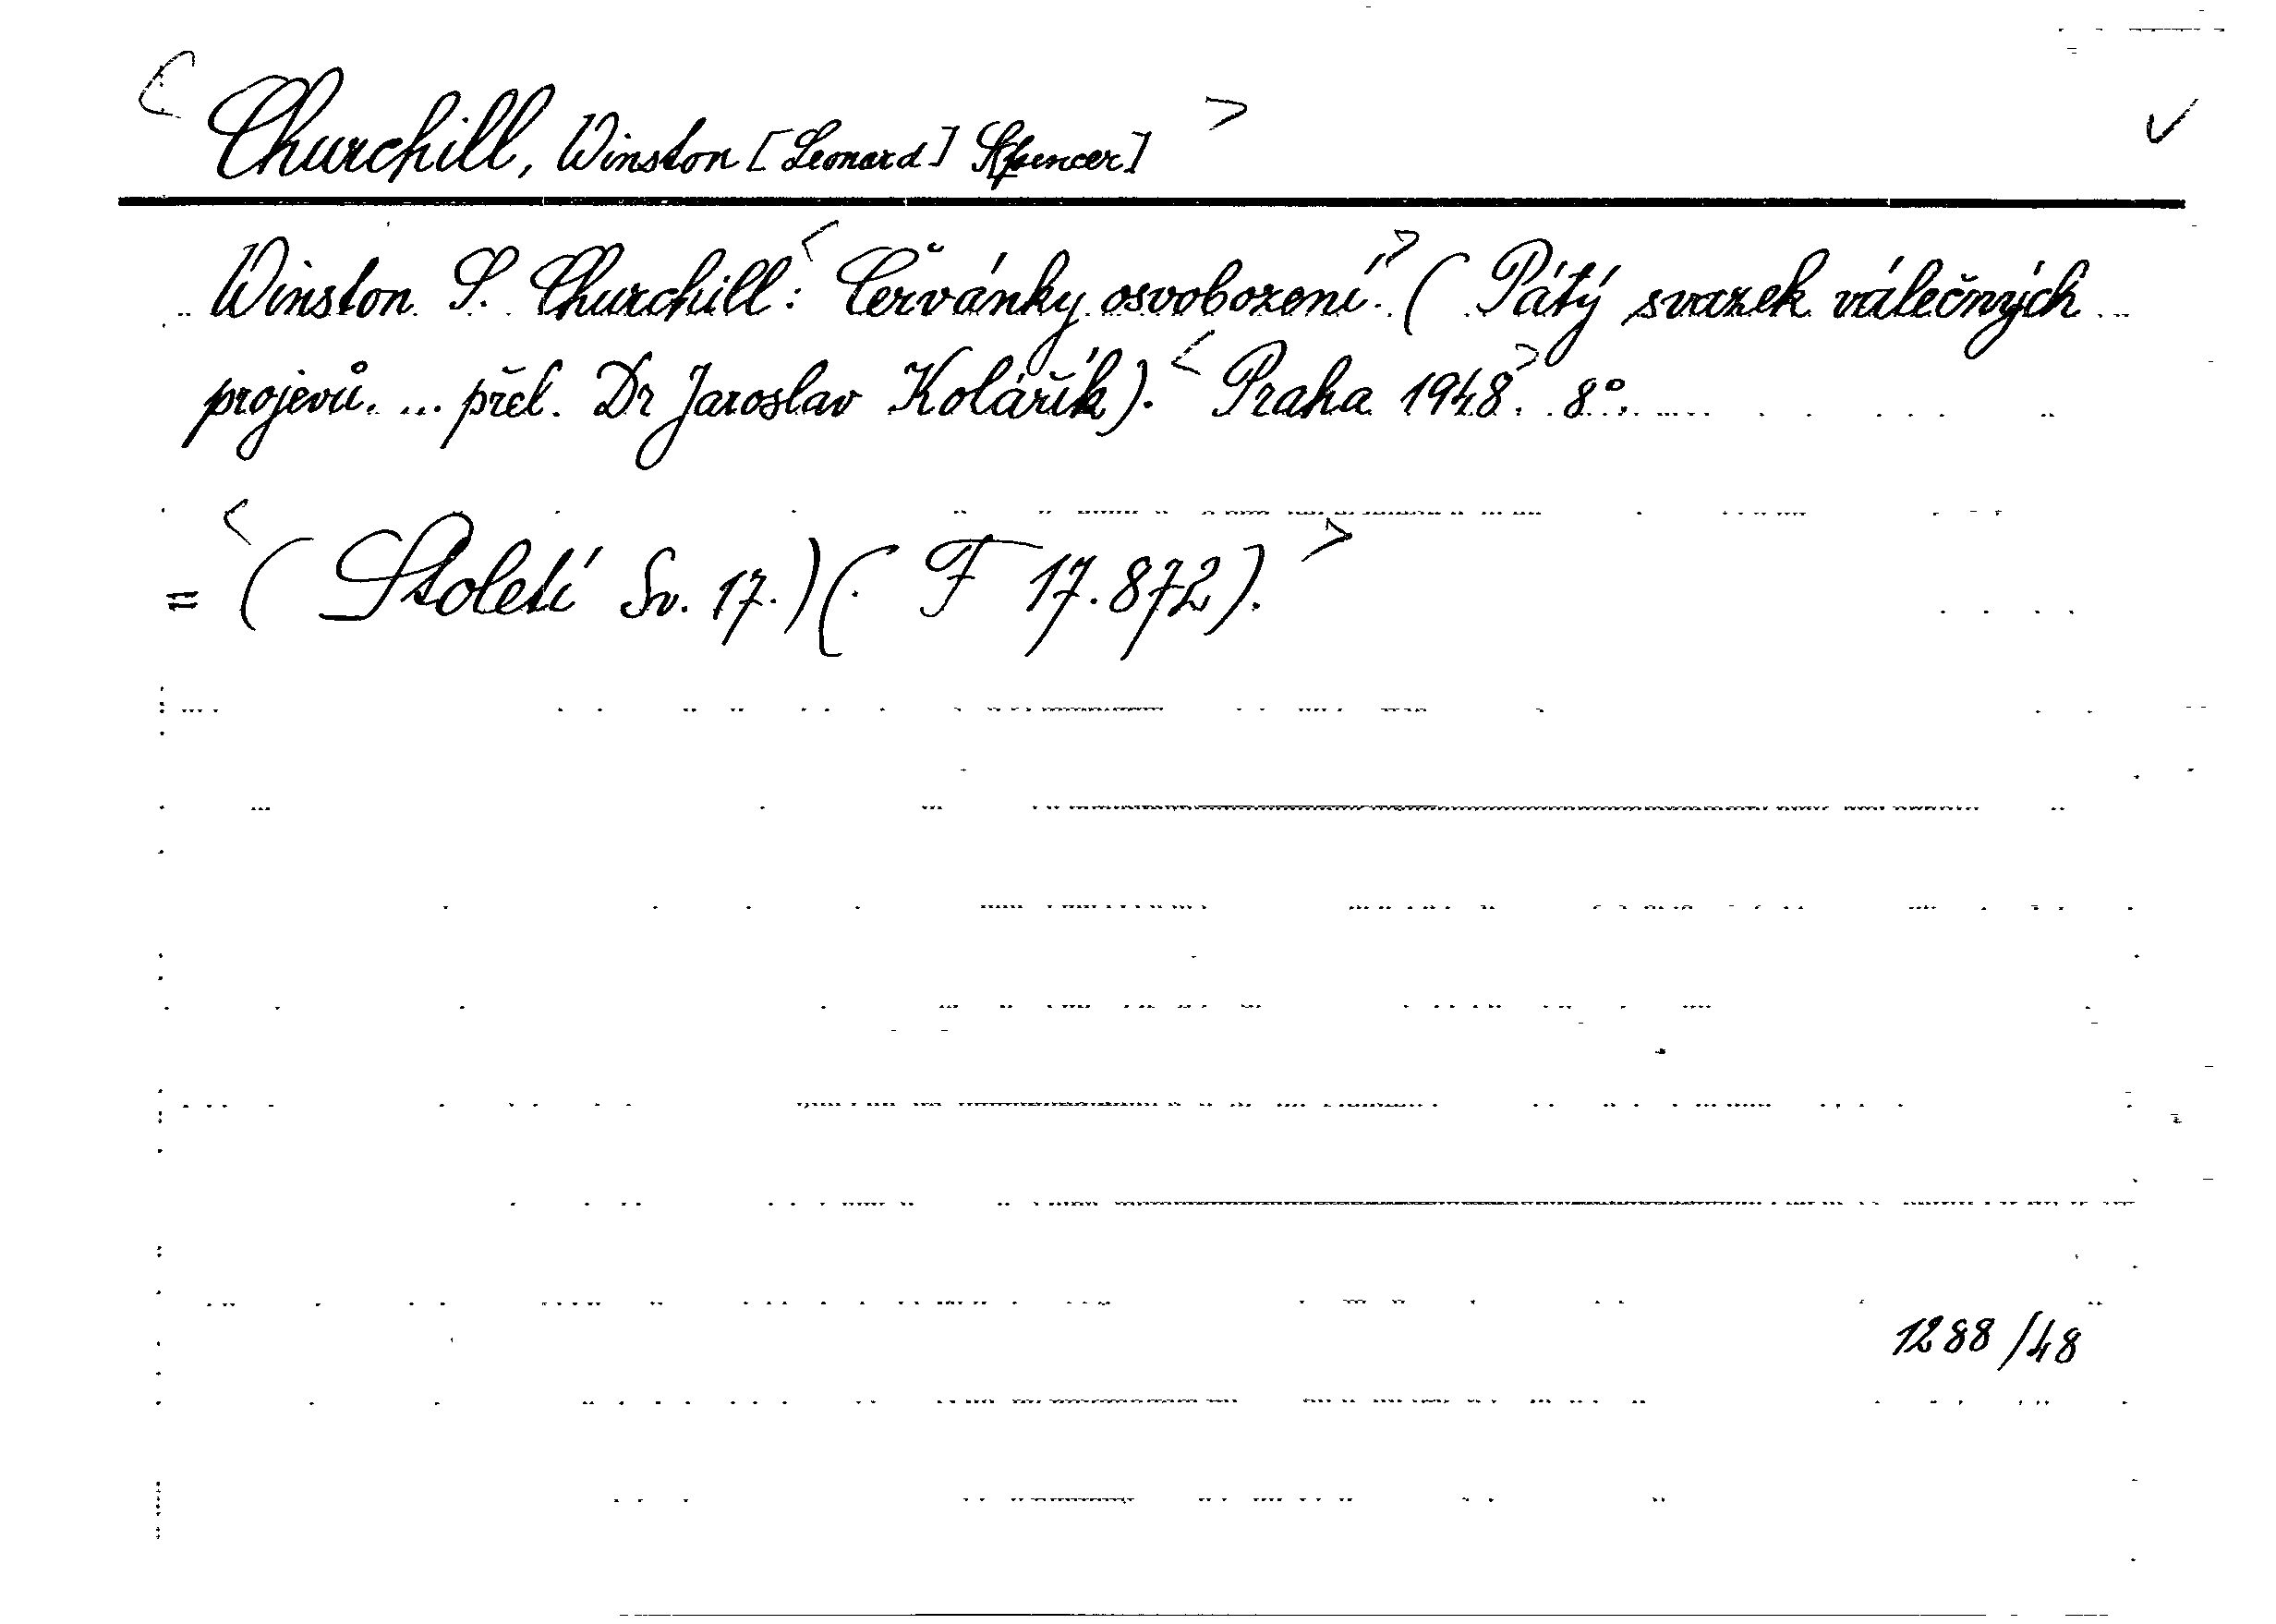 < Churchill, Winston [Leonard] Spencer] > ✓
Winston S. Churchill: < Červánky osvobození. > ( Pátý svazek válečných
projevů. ... přel. Dr Jaroslav Kolářík). < Praha 1948 >. 8°.
= < ( Století Sv. 17.) ( F 17.872). >
1288/48